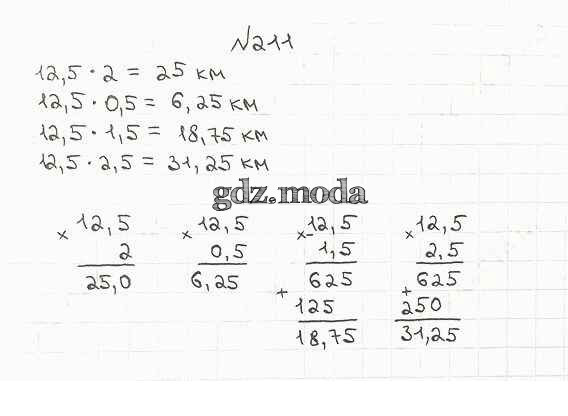 №211
12,5 · 2 = 25 км
12,5 · 0,5 = 6,25 км
12,5 · 1,5 = 18,75 км
12,5 · 2,5 = 31,25 км
gdz.moda
× 12,5
2
25,0
× 12,5
0,5
6,25
× 12,5
1,5
625
+
125
18,75
× 12,5
2,5
625
+
250
31,25